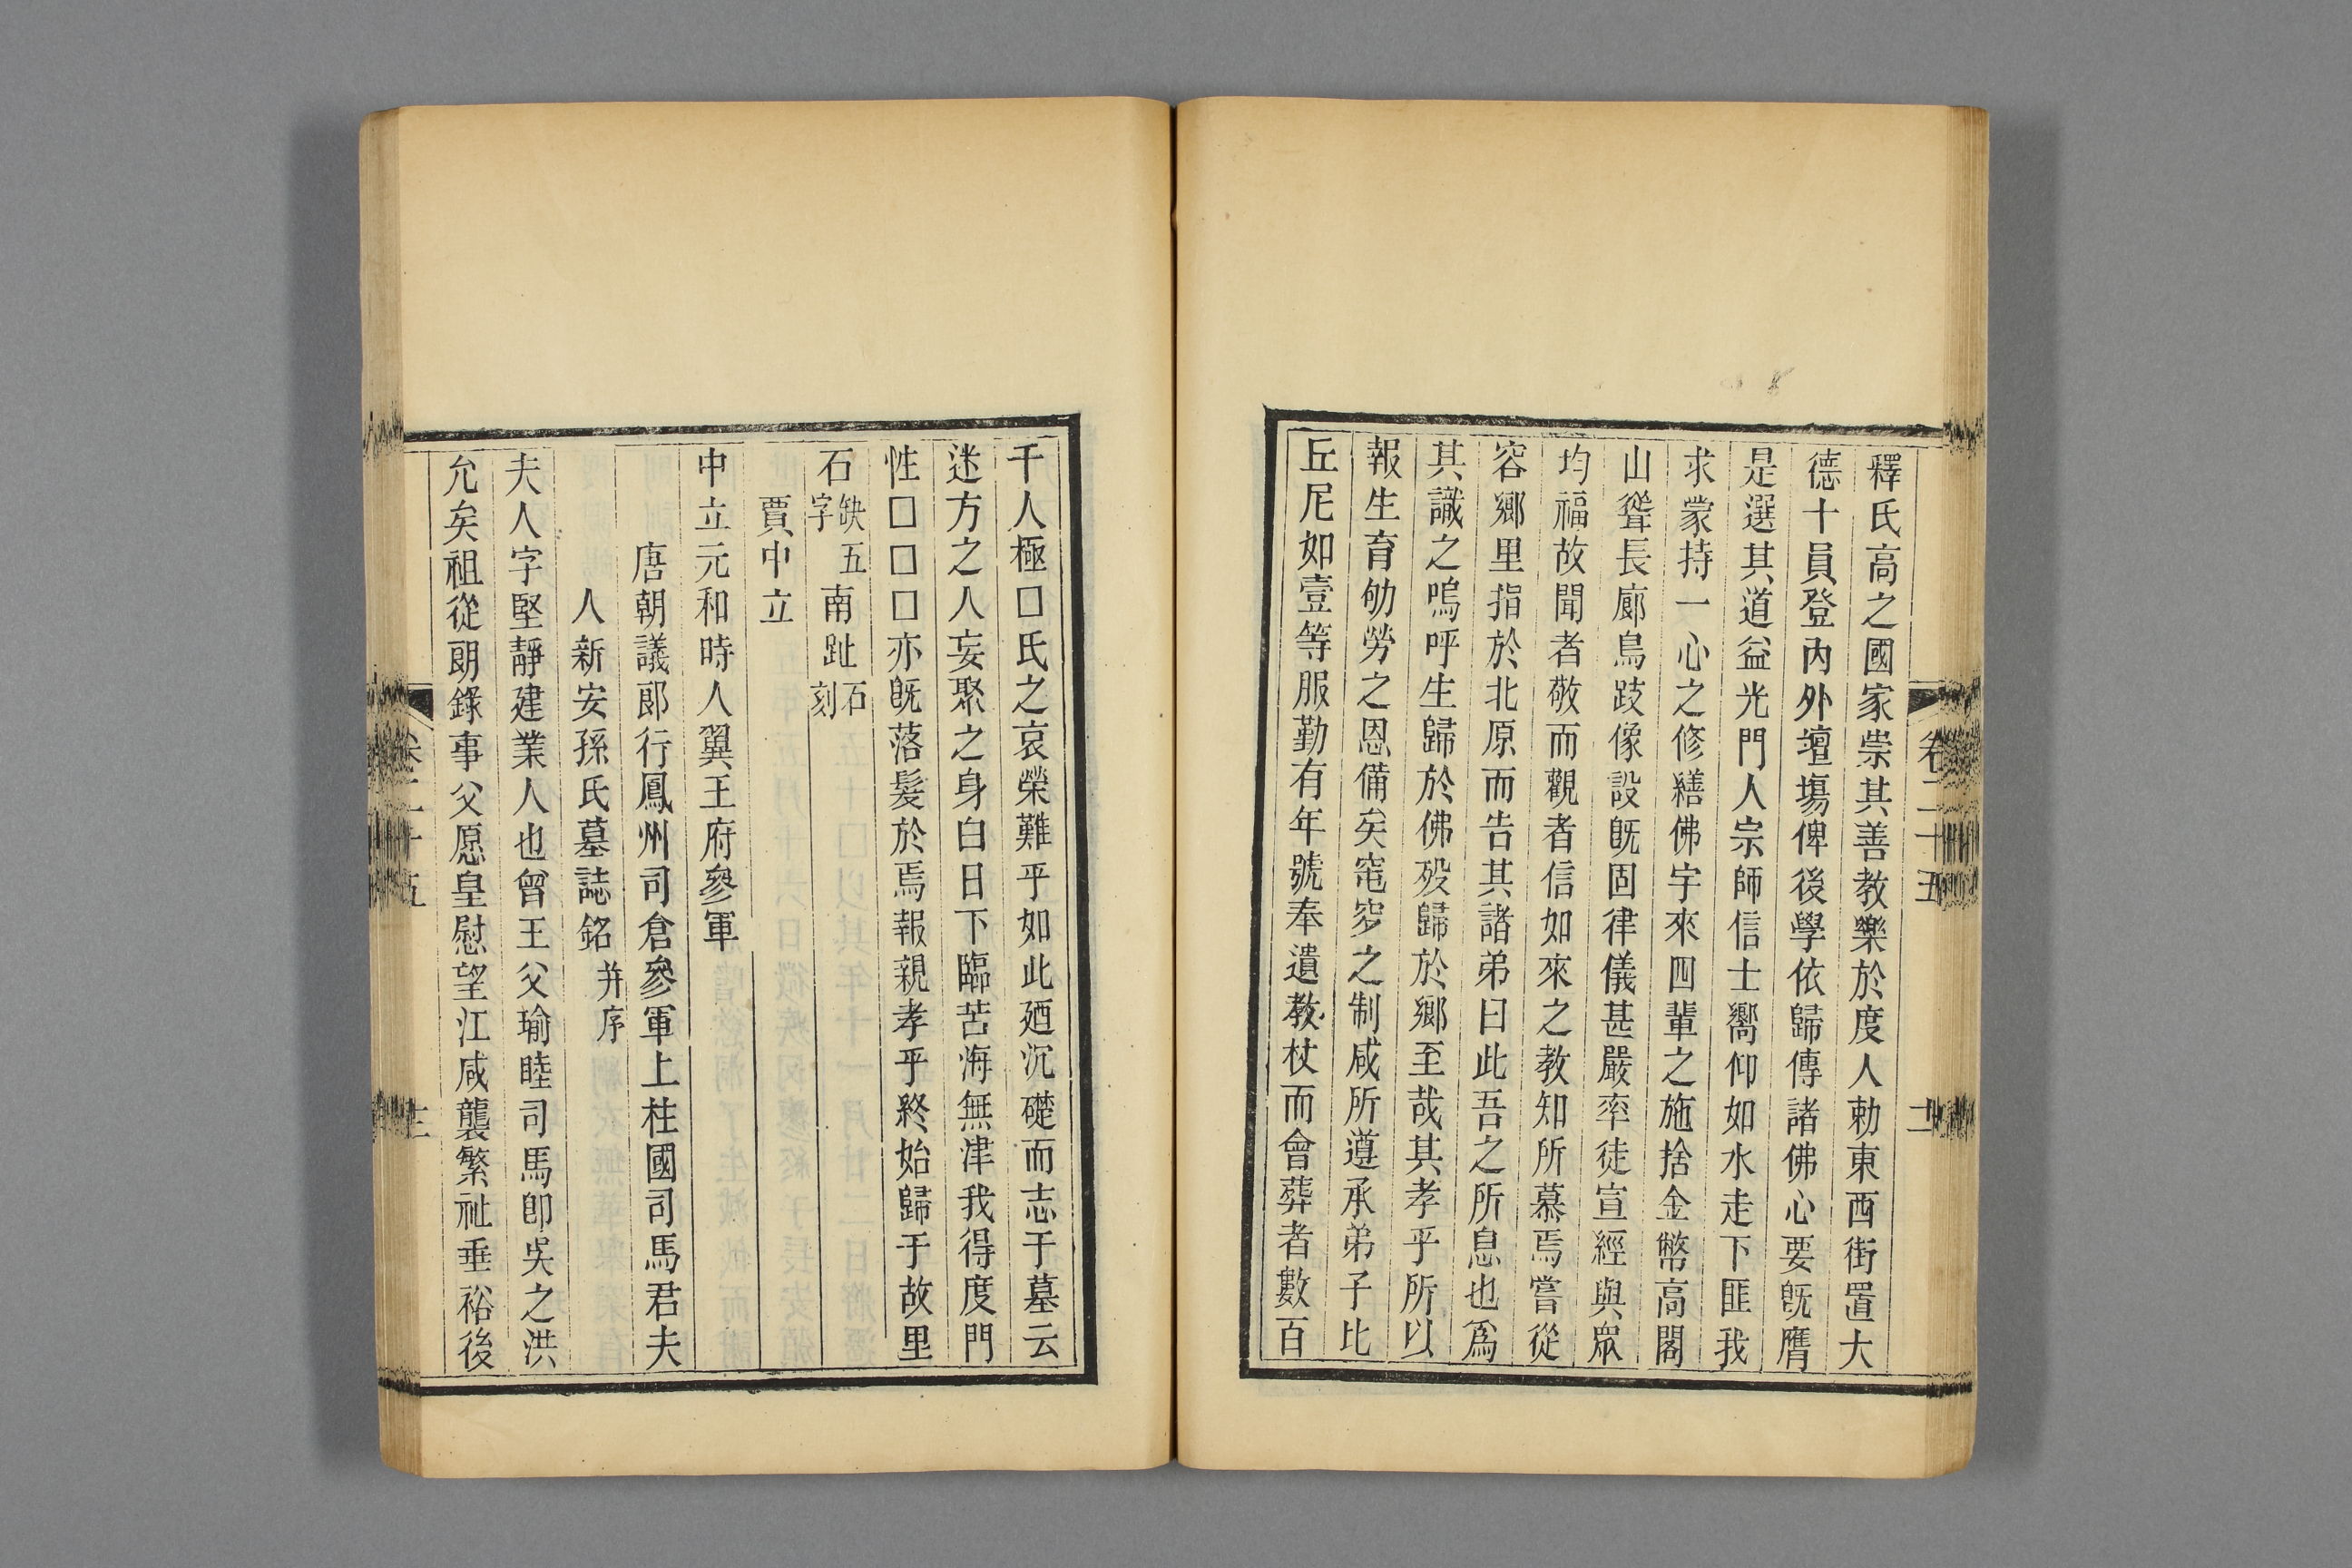 釋氏高之國家崇其善教樂於度人勅東西街置大
德十員登內外壇場俾後學依歸傳諸佛心要旣膺
是選其道益光門人宗師信士嚮仰如水走下匪我
求蒙持一心之修繕佛宇來四輩之施捨金幣高閣
山聳長廊鳥跂像設旣固律儀甚嚴率徒宣經與眾
均福故聞者敬而觀者信如來之教知所慕焉嘗從
容鄉里指於北原而告其諸弟曰此吾之所息也爲
其識之嗚呼生歸於佛歿歸於鄉至哉其孝乎所以
報生育劬勞之恩備矣窀穸之制咸所遵承弟子比
丘尼如壹等服勤有年號奉遺教杖而會葬者數百
卷二十五
千人極口氏之哀榮難乎如此廼沉礎而志于墓云
迷方之人妄聚之身白日下臨苦海無津我得度門
性□□□亦旣落髮於焉報親孝乎終始歸于故里
石缺五字南趾石刻
賈中立
中立元和時人翼王府參軍
唐朝議郎行鳳州司倉參軍上柱國司馬君夫
人新安孫氏墓誌銘并序
夫人字堅靜建業人也曾王父瑜睦司馬卽吳之洪
允矣祖從朗錄事父愿皇慰望江咸襲繁祉垂裕後
卷二十五